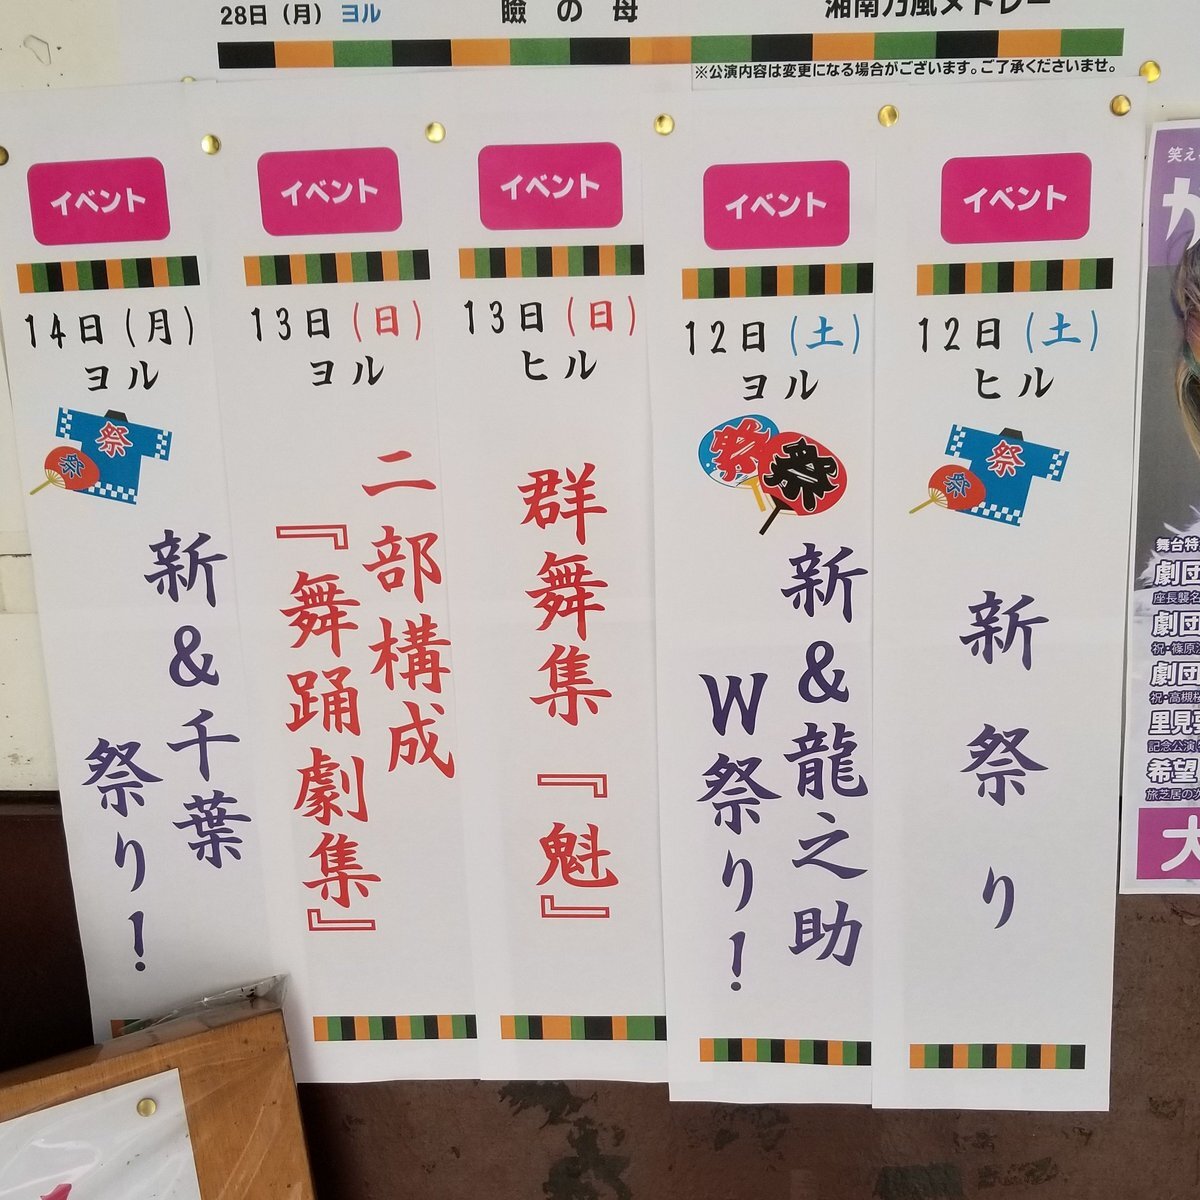 28日（月）ヨル
瞼の母
湘南乃風メドレー
※公演内容は変更になる場合がございます。ご了承くださいませ。
イベント
12日（土）
ヒル
祭
祭
新祭り
イベント
12日（土）
ヨル
祭
祭
新&龍之助
W祭り！
イベント
13日（日）
ヒル
群舞集『魁』
イベント
13日（日）
ヨル
二部構成
『舞踊劇集』
イベント
14日（月）
ヨル
祭
祭
新&千葉
祭り！
笑え
カ
舞台特
劇団
座長襲名
劇団
祝・篠原
劇団
祝・高槻
里見
記念公演
希望
旅芝居の